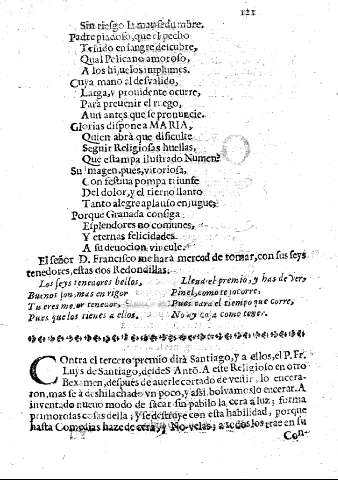 121
Sin riesgo la mansedumbre.
Padre piadoso, que el pecho
Teñido en sangre descubre,
Qual Pelicano amoroso,
A los hijuelos implumes.
Cuya mano al desvalido,
Larga, y providente ocurre,
Para prevenir el ruego,
Aun antes que se pronuncie.
Glorias dispone a MARIA,
Quien abrà que dificulte
Seguir Religiosas huellas,
Que estampa ilustrado Numen?
Su Imagen, pues, vitoriosa,
Con festiua pompa triunfe
Del dolor, y el tierno llanto
Tanto alegre aplauso enjugue;
Porque Granada consiga
Esplendores no comunes,
Y eternas felicidades
A su deuocion vincule.
El señor D. Francisco me harà merced de tomar, con sus seys
tenedores, estas dos Redondillas.
Los seys tenedores bellos,
Buenos son, mas en rigor
Tu eres mejor tenedor,
Pues que los tienes a ellos.
Lleua el premio, y has de ver,
Pinel, como te socorre,
Pues para el tiempo que corre,
No ay cosa como tener.
COntra el tercero premio dirà Santiago, y a ellos, el P. Fr.
Luys de Santiago, desde S. Antō. A este Religioso en otro
Bexamen, despues de auerle cortado de vestir, lo encera-
ron, mas se à deshilachado vn poco, y assi, bolvamoslo encerar. A
inventado nueuo modo de sacar sin pabilo la cera a luz; forma
primorosas cosas della; y se destruye con esta habilidad, porque
hasta Comedias haze de cera, y Novelas; a todos los trae en su
Con-